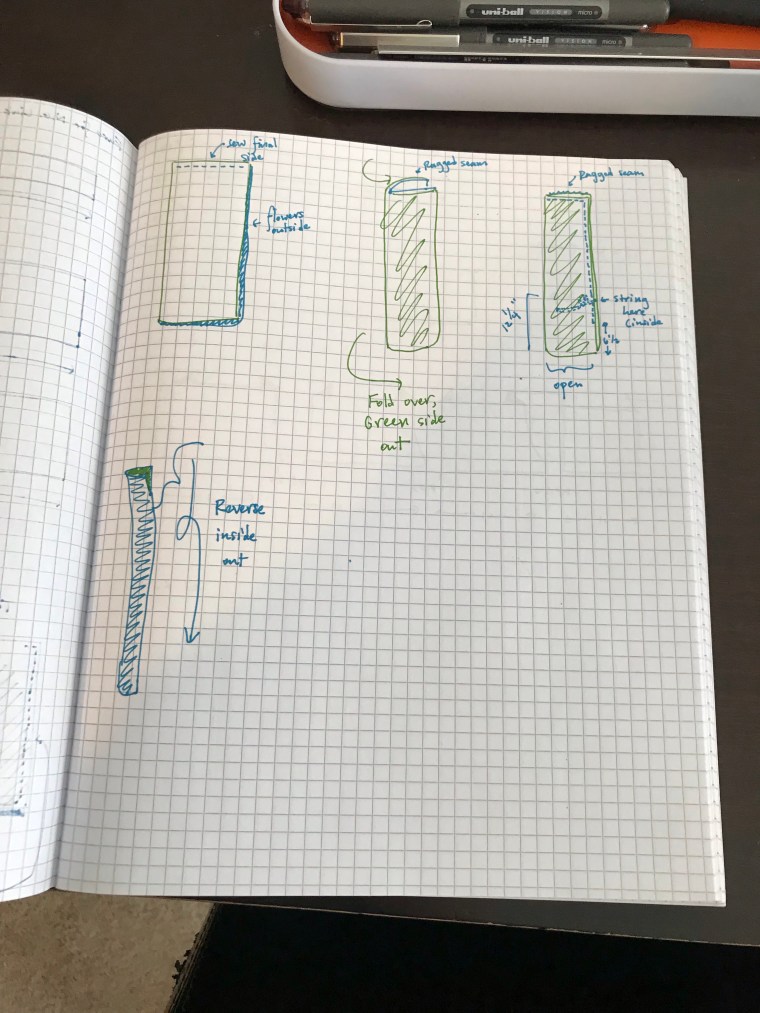 uni-ball VISION micro
uni-ball VISION micro
sew final
side
flowers
outside
Ragged seam
Fold over,
Green side
out
Ragged seam
string
here
(inside
open
Reverse
inside
out